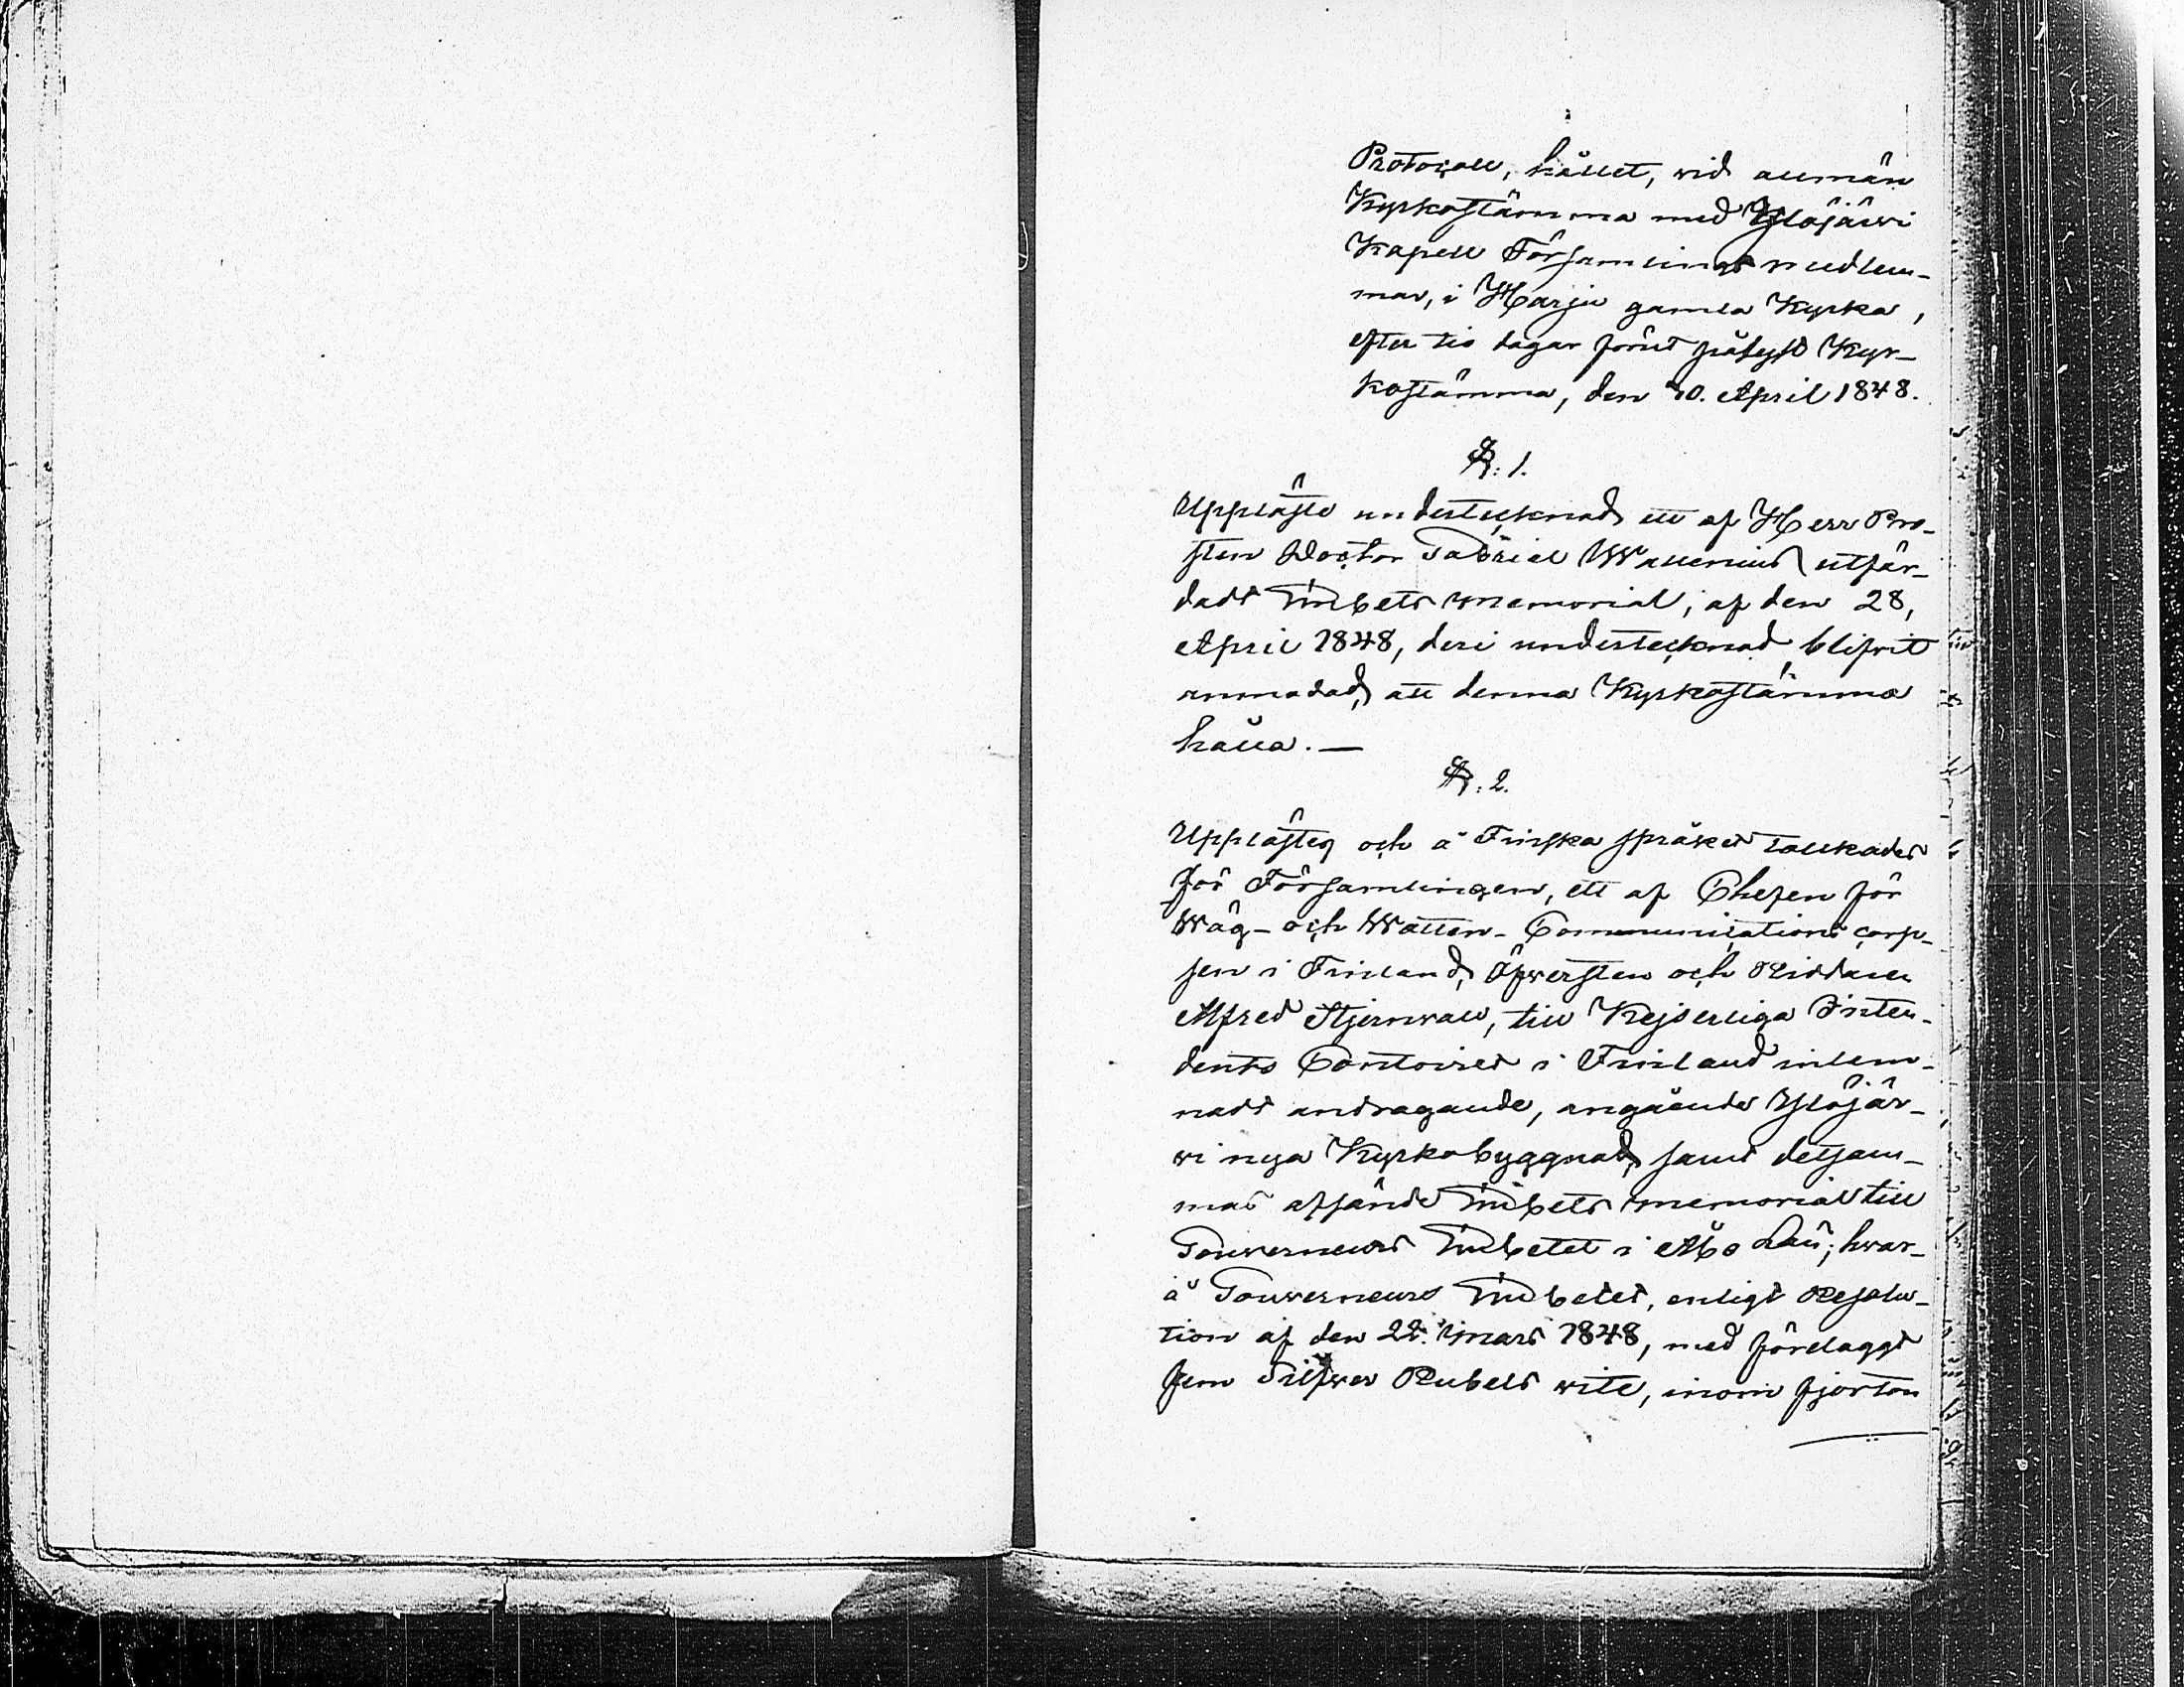 Protocoll, hållet, vid allmän
Kyrkostämma med Ylöjärvi
Kapell Församlings medlem-
mar, i Harju gamla Kyrka,
efter tio dagar förut pålyst Kyr-
kostämma, den 30. April 1848.
§: 1.
Upplästo undertecknad ett af Herr Pro-
sten Doctor Gabriel Wallenius utfär-
dadt Embets memorial, af den 28,
April 1848, deri undertecknad blifvit
anmodad, att denna Kyrkostämma
hålla. —
§: 2.
Upplästes och å Finska språket tolkades
för Församlingen, ett af Chefen för
Wäg- och Watten- Communications corp-
sen i Finland, Öfversten och Riddaren
Alfred Stjernvall, till Kejserliga Inten-
dents Contoiret i Finland inlem-
nadt andragande, angående Ylöjär-
vi nya Kyrkobyggnad, samt detsam-
mas afsände Embets memorial till
Gouverneurs Embetet i Åbo Län; hvar-
å Gouverneurs Embetet, enligt Resolu-
tion af den 22. Mars 1848, med förelaggt
fem Silfver Rubels vite, inom fjorton